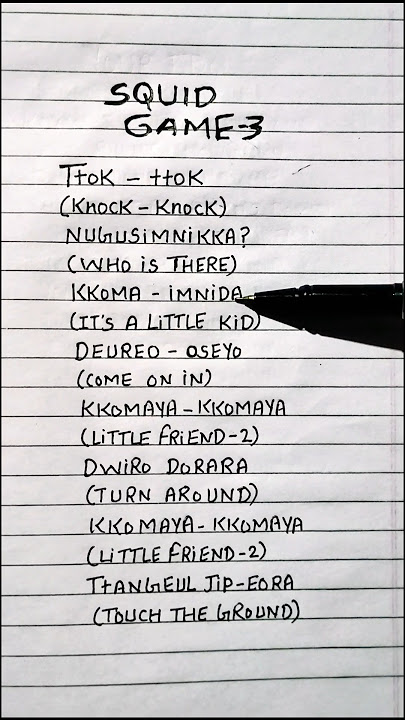 SQUID
GAME-3
TtOK - ttOK
(KNOCK - KNOCK)
NUGUSiMNiKKA?
(WHO iS THERE)
KKOMA - iMNiDA
(IT'S A LiTTLE KiD)
DEUREO - OSEYO
(COME ON iN)
KKOMAYA - KKOMAYA
(LiTTLE FRiEND-2)
DWiRO DORARA
(TURN AROUND)
KKOMAYA - KKOMAYA
(LiTTLE FRiEND-2)
TtANGEUL JiP-EORA
(TOUCH THE GROUND)